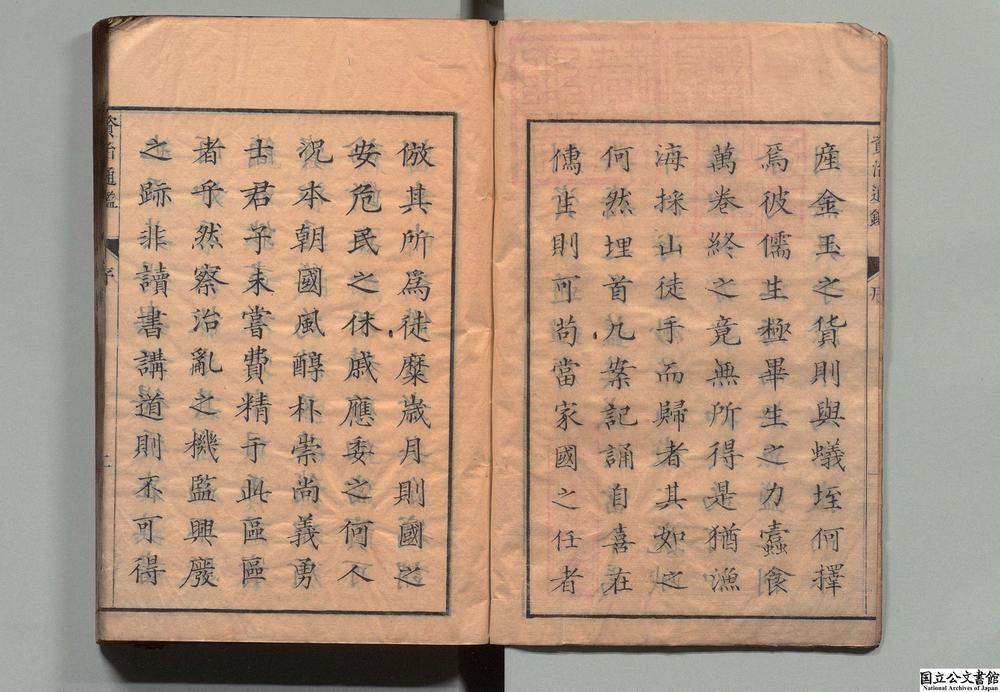 産金玉之貨則與蟻垤何擇
焉彼儒生極畢生之力蠹食
萬卷終之竟無所得是猶漁
海採山徒手而歸者其如之
何然埋首几案記誦自喜在
儒生則可苟當家國之任者
倣其所為徒糜歲月則國之
安危民之休戚應委之何人
況本朝國風醇朴崇尚義勇
士君子未嘗費精于此區區
者乎然察治亂之機監興廢
之跡非讀書講道則不可得
資治通鑑
序
二
国立公文書館
National Archives of Japan